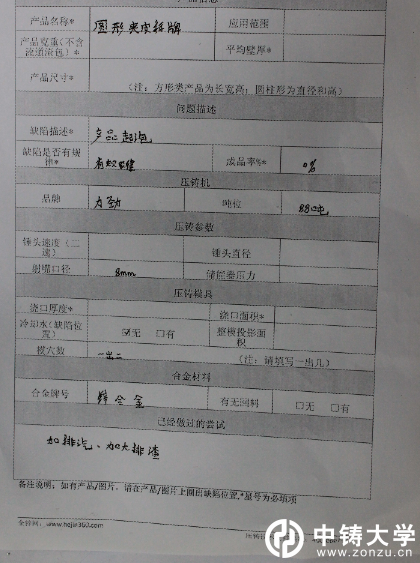 产品信息
产品名称* 圆形类皮标牌 应用范围
产品克重(不含
流道渣包)* 平均壁厚*
产品尺寸*
(注:方形类产品为长宽高;圆柱形为直径和高)
问题描述
缺陷描述* 产品起泡
缺陷是否有规
律* 有规律 成品率%* 0%
压铸机
品牌 力劲 吨位 88吨
压铸参数
锤头速度(二
速) 锤头直径
射嘴口径 8mm 储能器压力
压铸模具
浇口厚度* 浇口面积*
冷却水(缺陷位
置) ☑无 □有 整模投影面
积
模穴数 一出二 (注:请填写一出几)
合金材料
合金牌号 锌合金 有无回料 □无 □有
已经做过的尝试
加排汽、加大排渣
备注说明:如有产品/图片,请在产品/图片上圈出缺陷位置,*星号为必填项
www.hejin360.com
中铸大学
www.zonzu.cn